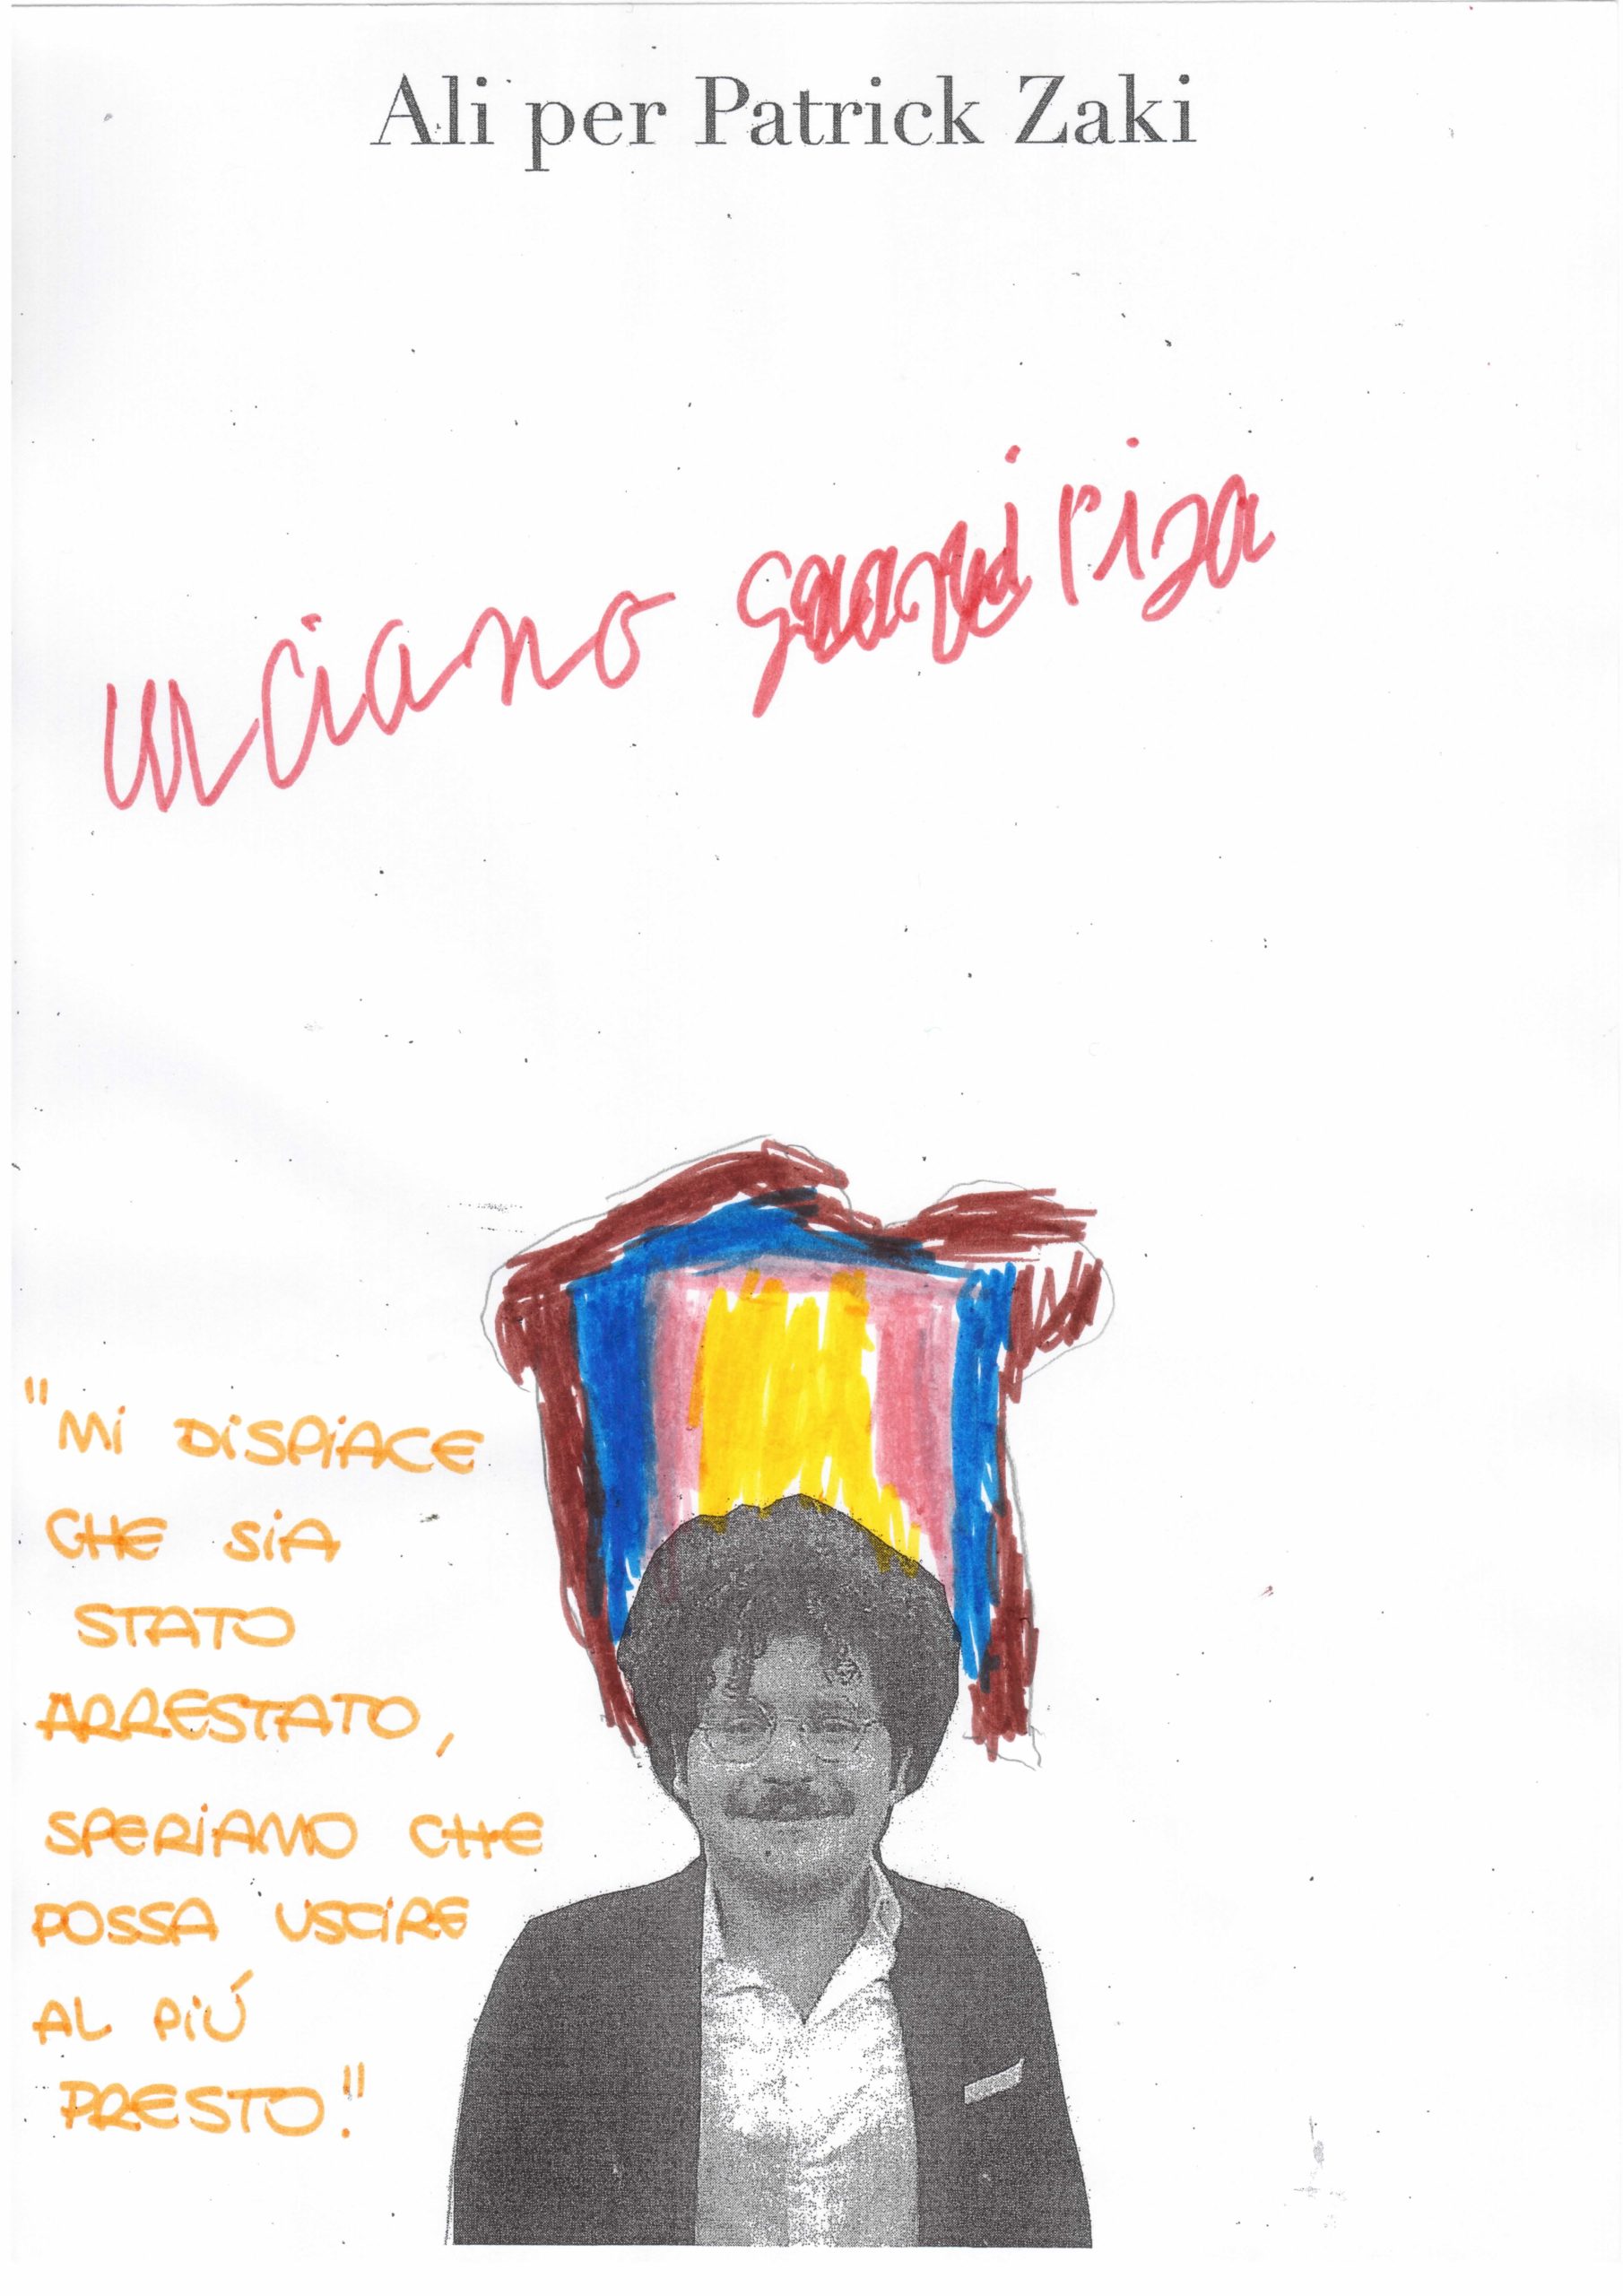 Ali per Patrick Zaki
"Mi DiSPiACE
CHE SiA
STATO
ARRESTATO,
SPERiAMO CHE
POSSA USCIRE
AL PiÚ
PRESTO!"